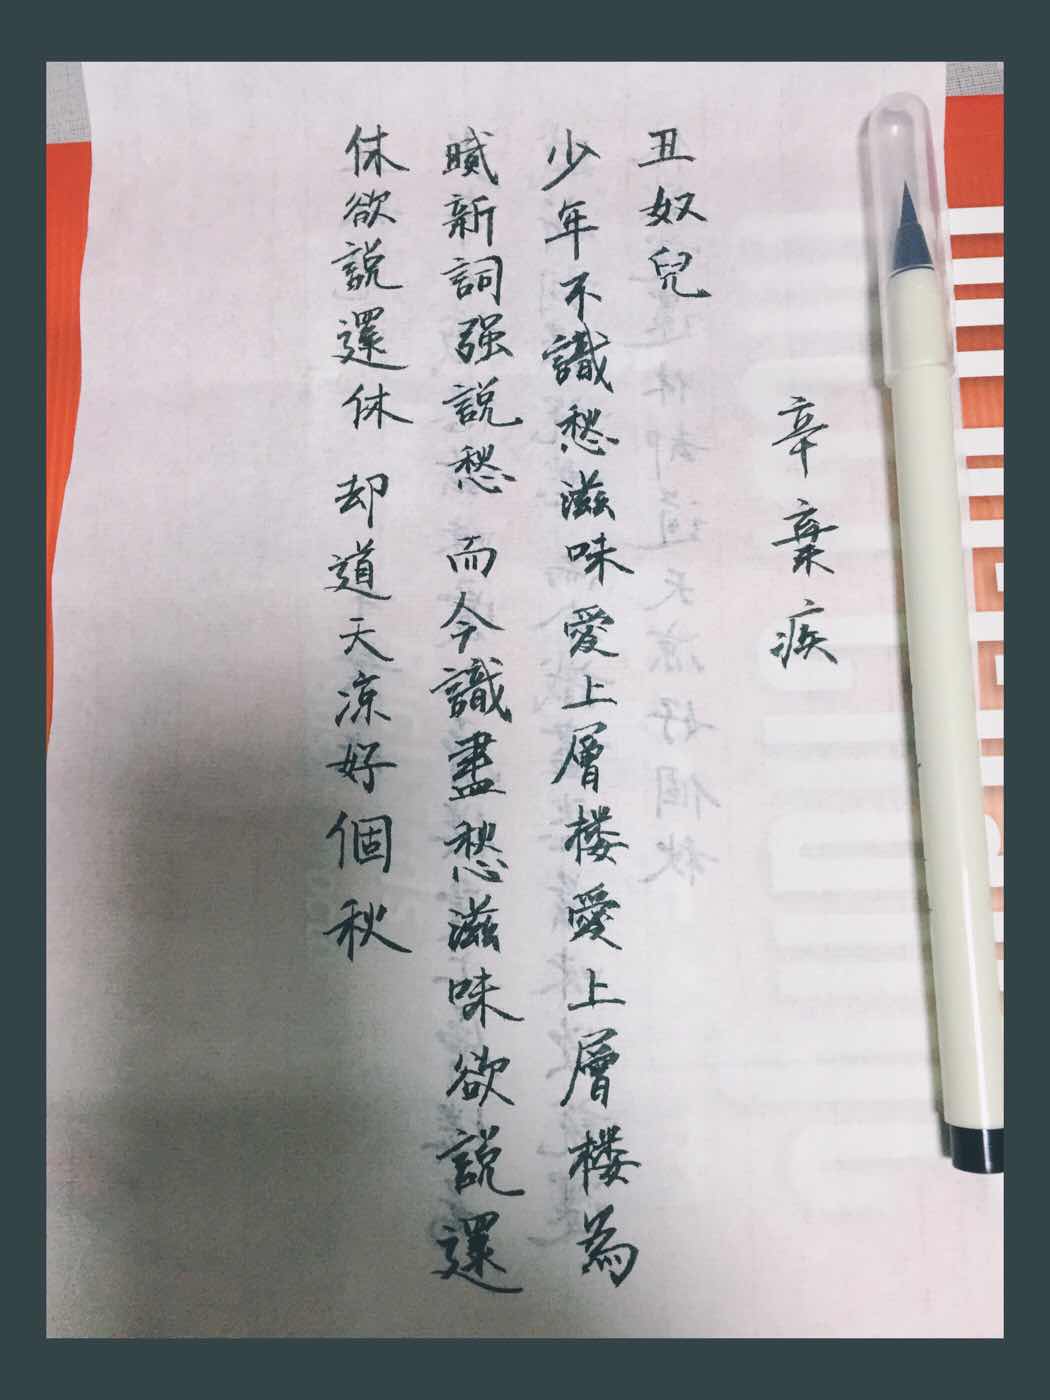 辛棄疾
丑奴兒
少年不識愁滋味愛上層楼愛上層楼為
賦新詞强説愁 而今識盡愁滋味欲説還
休欲説還休 却道天凉好個秋